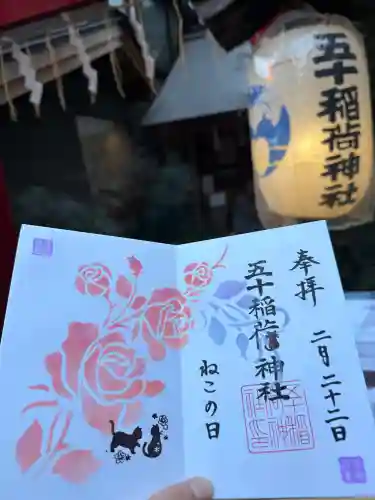 五十稲荷神社
奉拝
二月二十二日
五十稲荷神社
ねこの日